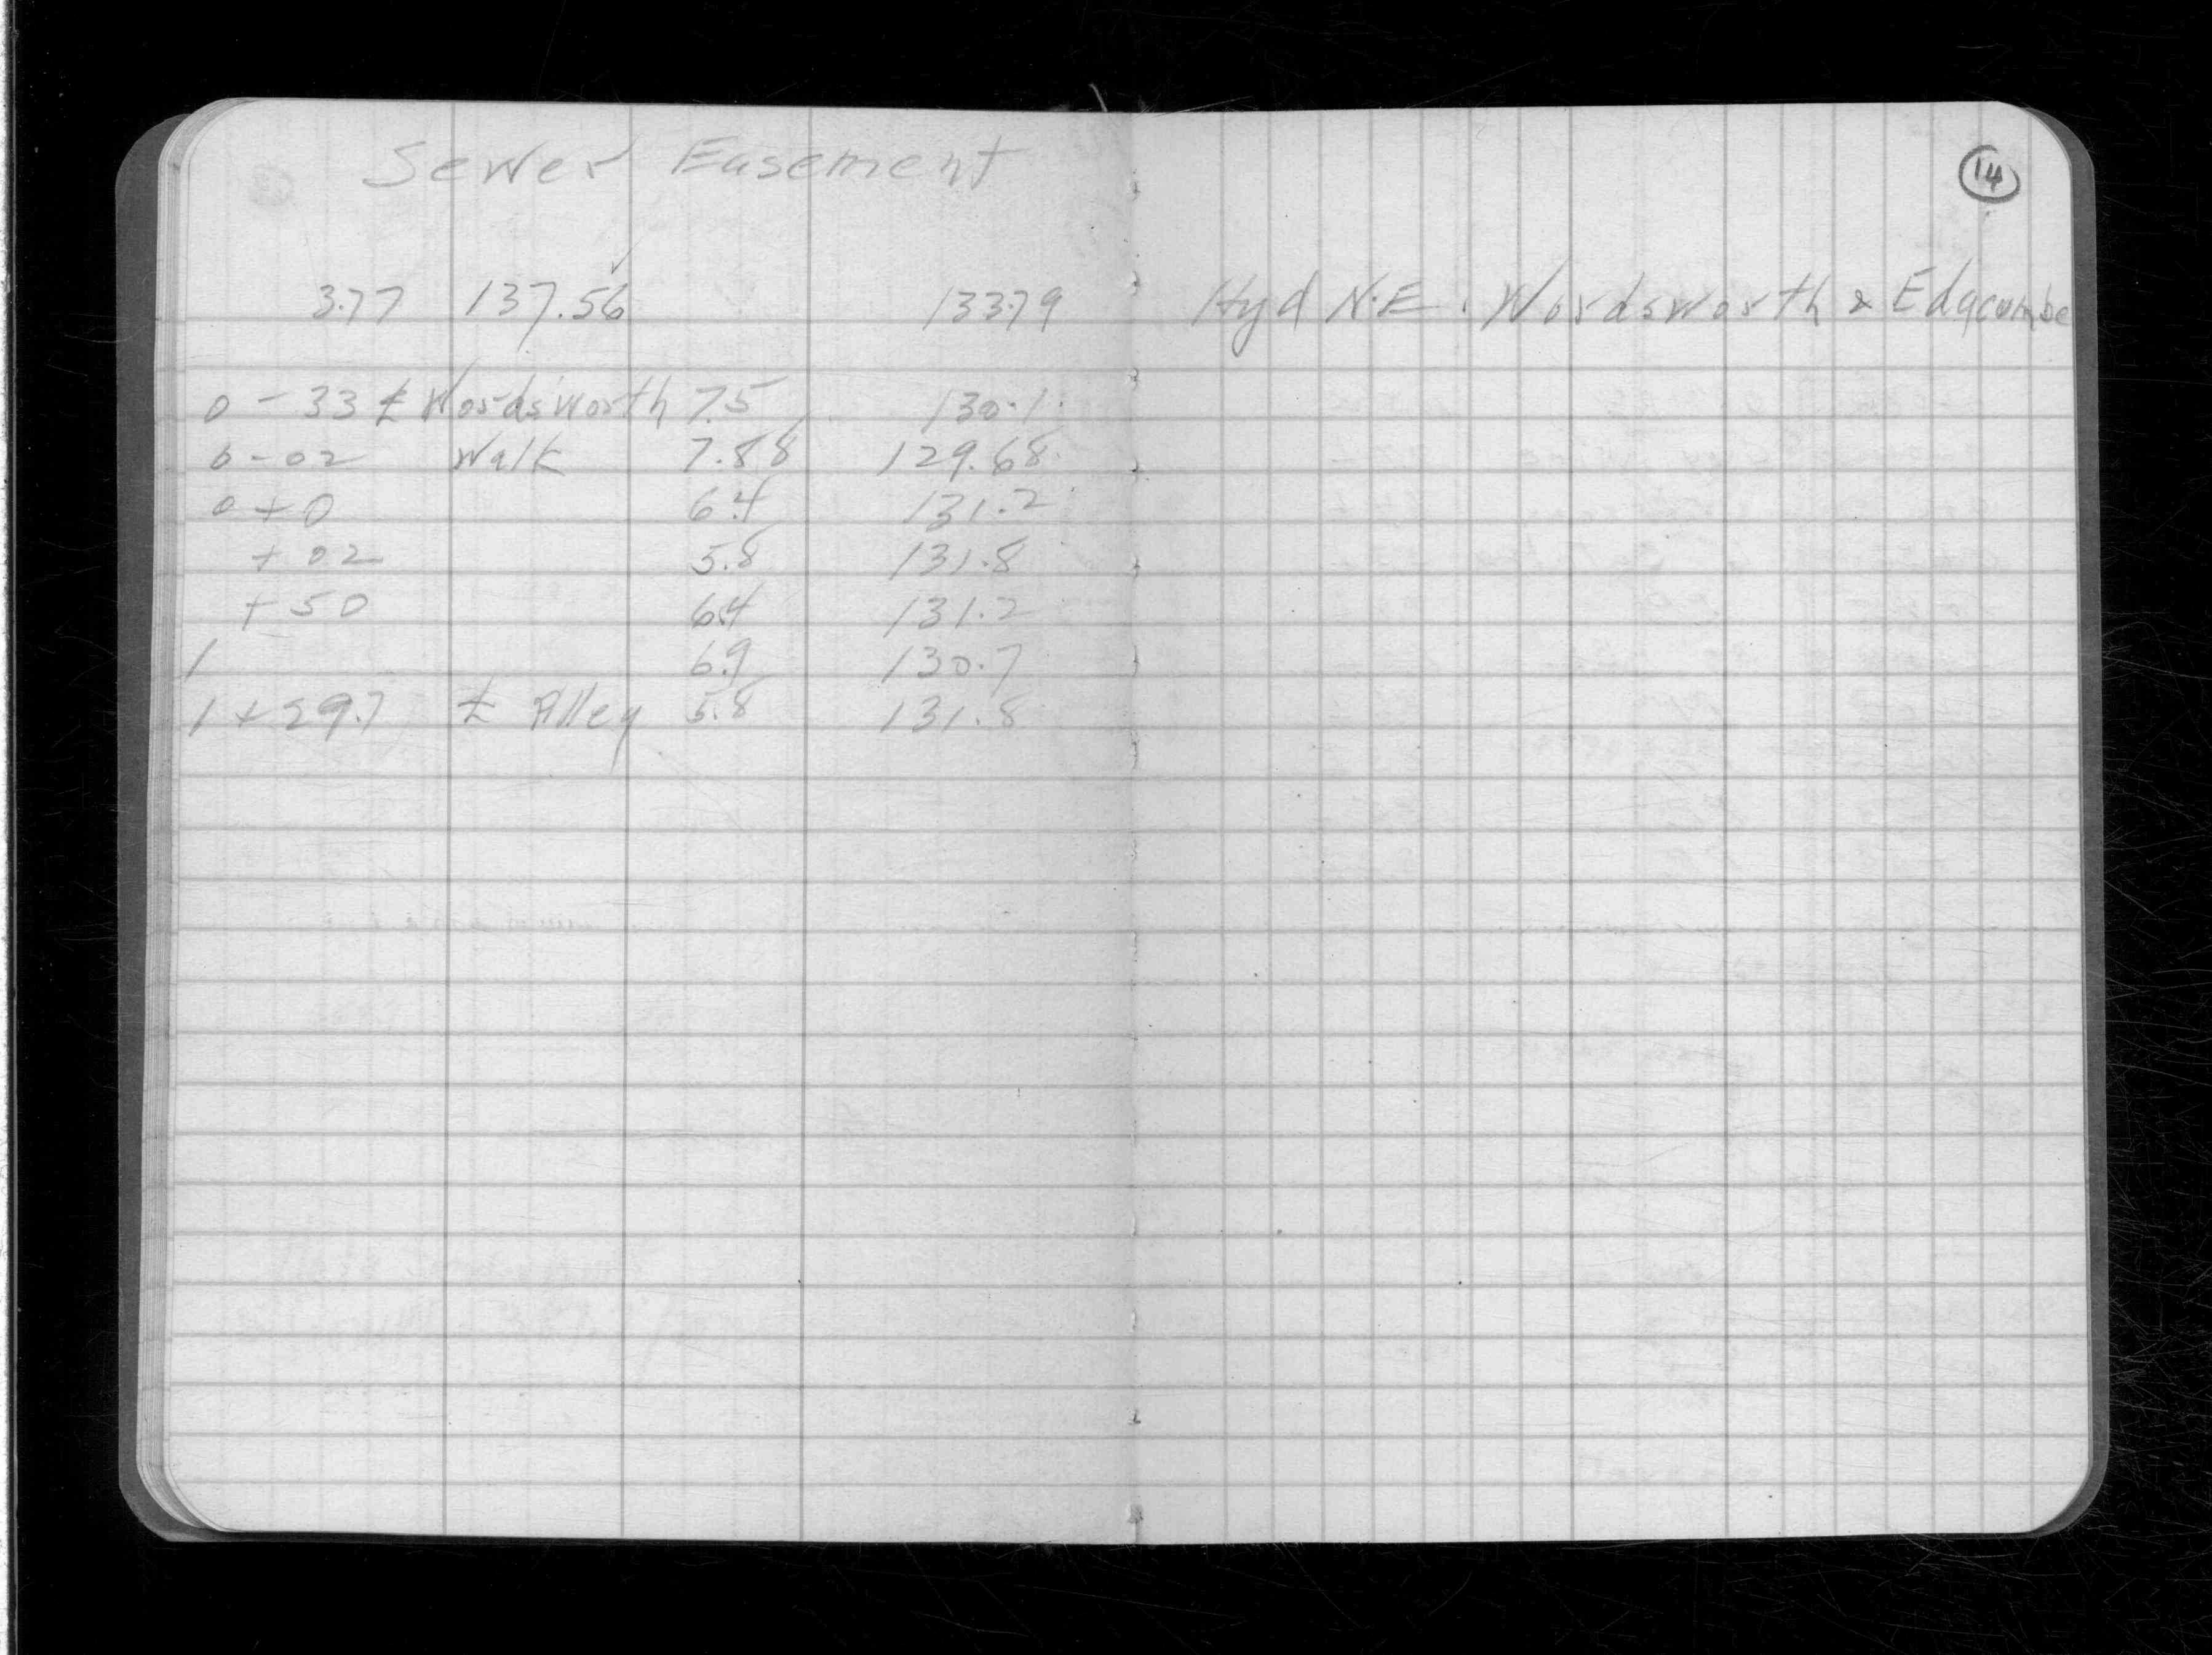 Sewer Easement
14
3.77 137.56 133.79 Hyd N.E. Wordsworth & Edgcumbe
0 - 33 ℄ Wordsworth 7.5 130.1
0 - 02 Walk 7.88 129.68
0 + 0 6.4 131.2
+ 02 5.8 131.8
+ 50 6.4 131.2
1 6.9 130.7
1 + 29.7 ℄ Alley 5.8 131.8